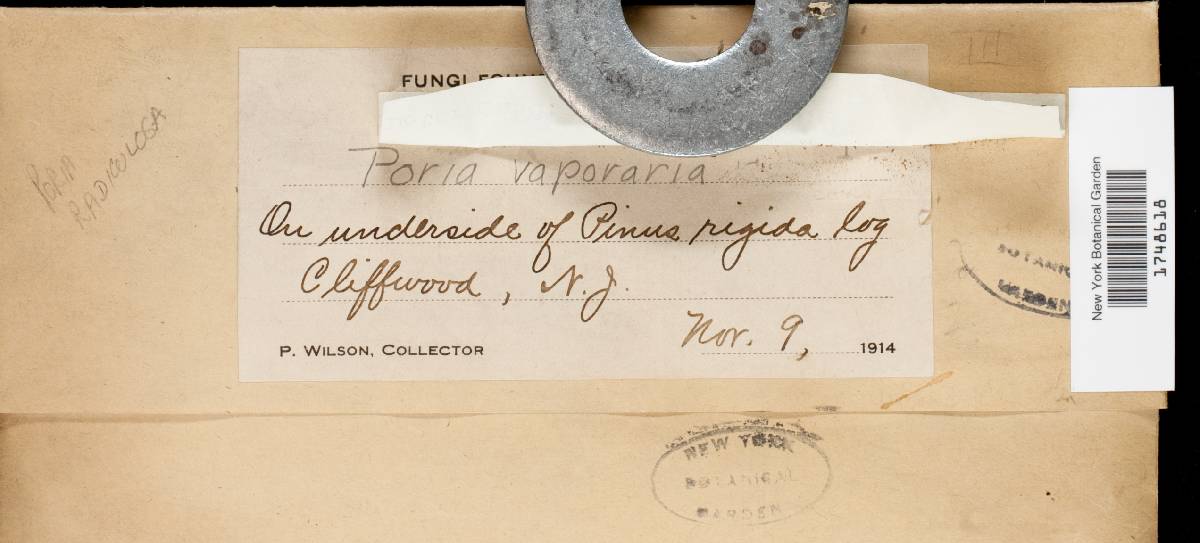 FUNGI
Poria vaporaria
On underside of Pinus rigida log
Cliffwood, N.J.
Nov. 9, 1914
P. WILSON, COLLECTOR
PORIA
RADICULOSA
III
BOTANIC
GARDEN
New York Botanical Garden
1748618
NEW YORK
BOTANICAL
GARDEN